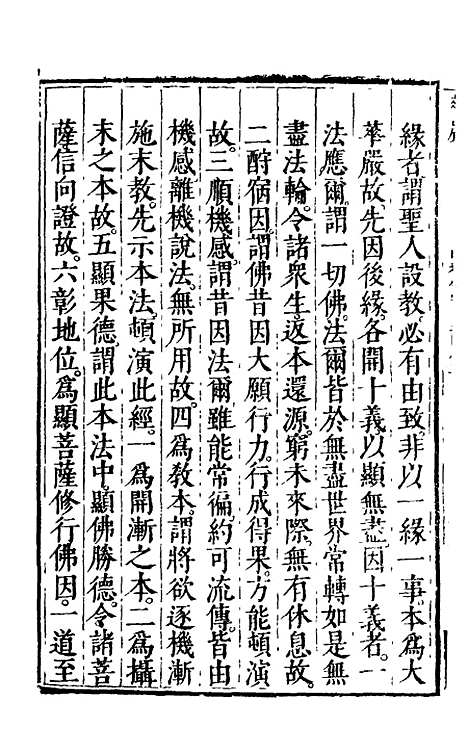 緣者。謂聖人設教。必有由致。非以一緣一事。本為大
華嚴故。先因後緣。各開十義。以顯無盡。因十義者。一
法應爾。謂一切佛。法爾皆於無盡世界。常轉如是無
盡法輪。令諸眾生。返本還源。窮未來際。無有休息故。
二酧宿因。謂佛昔因大願行力。行成得果。方能頓演
故。三順機感。謂昔因法爾雖能常徧。約可流傳。皆由
機感。離機說法。無所用故。四為教本。謂將欲逐機漸
施末教。先示本法。頓演此經。一為開漸之本。二為攝
末之本故。五顯果德。謂此本法中。顯佛勝德。令諸菩
薩信向證故。六彰地位。為顯菩薩修行佛因。一道至